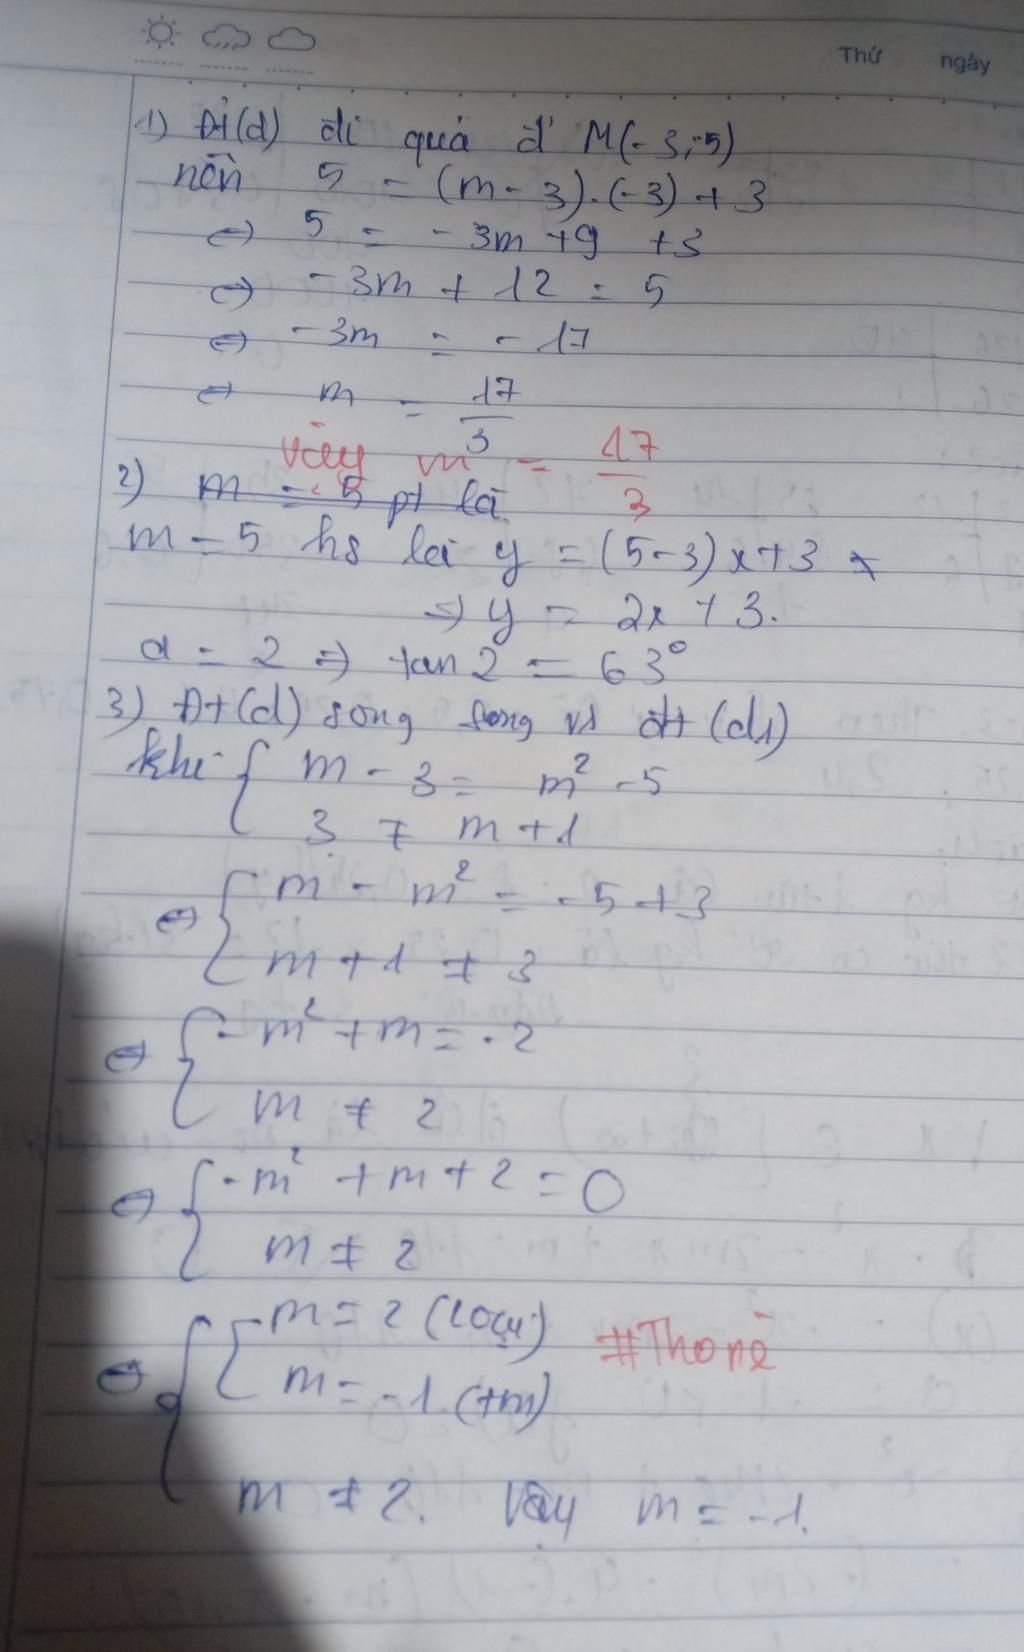 Thứ ngày
1) Đt(d) đi qua đ' M(-3;-5)
nên 5 = (m-3).(-3)+3
⇔ 5 = -3m+9 +3
⇔ -3m + 12 = 5
⇔ -3m = -17
⇔ m = 17/3
vậy m = 17/3
2) m = 5 pt là
m = 5 hs là y = (5-3)x+3
⇒ y = 2x + 3.
a = 2 ⇒ tan2 = 63°
3) Đt(d) song song vs đt (d1)
khi { m - 3 = m² - 5
3 ≠ m+1
⇔ { m - m² = -5+3
m+1 ≠ 3
⇔ { -m² + m = -2
m ≠ 2
⇔ { -m² + m + 2 = 0
m ≠ 2
⇔ { [ m = 2 (loại) #Thonè
m = -1 (tm)
m ≠ 2. Vậy m = -1.